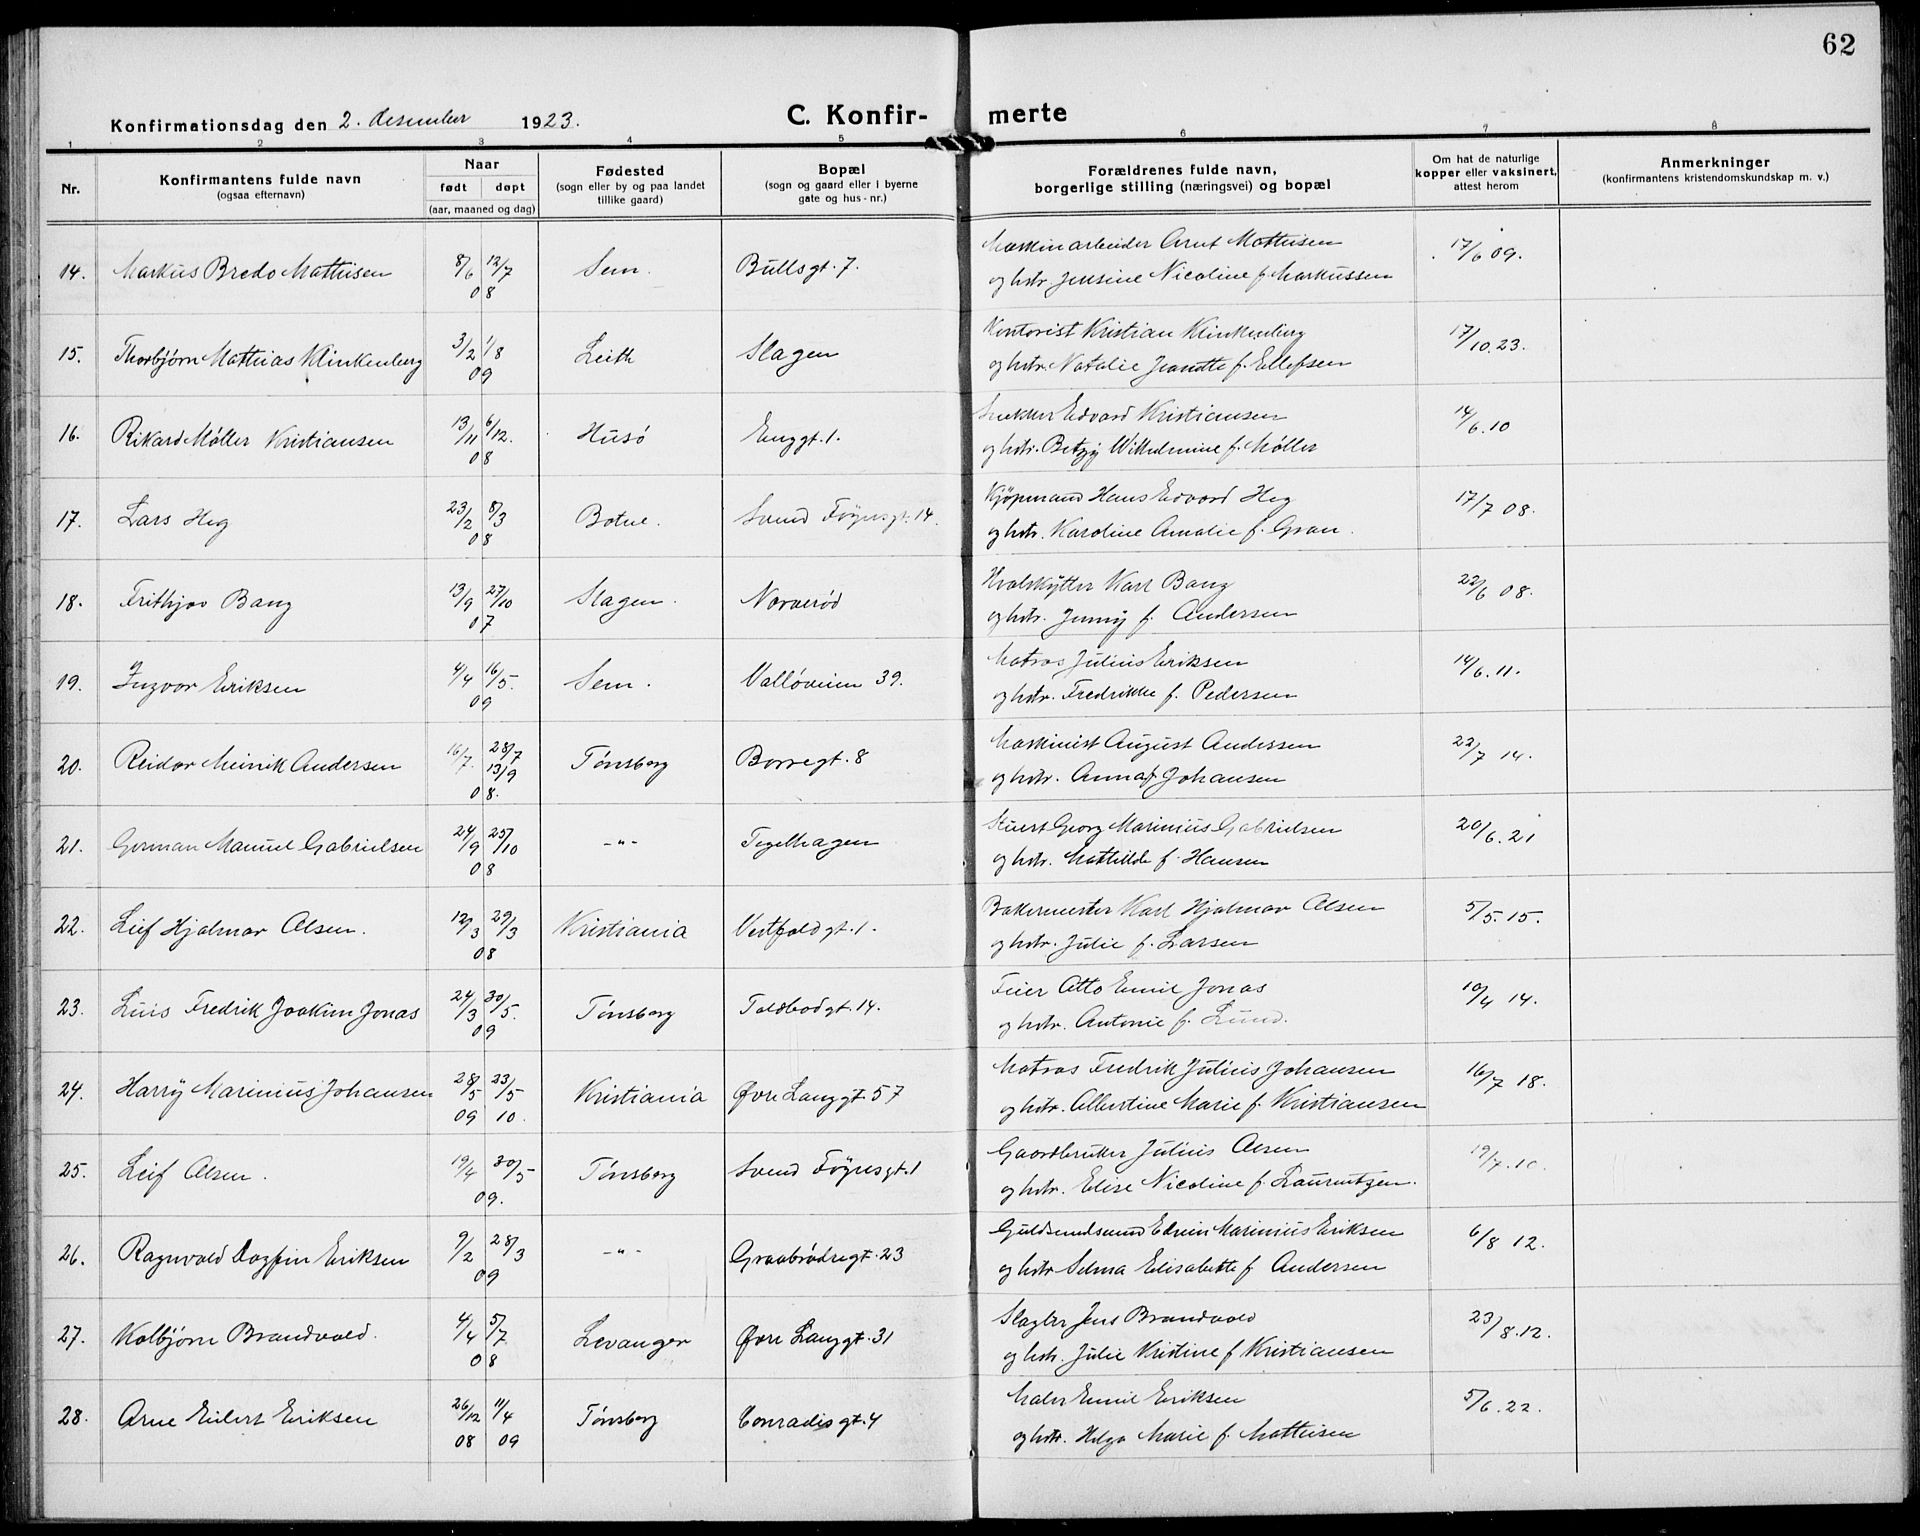 62
Konfirmationsdag den 2. desember 1923.
C. Konfir- merte
1 2 3 4 5 6 7 8
Nr.
Konfirmantens fulde navn
(ogsaa efternavn)
Naar
født døpt
(aar, maaned og dag)
Fødested
(sogn eller by og paa landet
tillike gaard)
Bopæl
(sogn og gaard eller i byerne
gate og hus-nr.)
Forældrenes fulde navn,
borgerlige stilling (næringsvei) og bopæl
Om hat de naturlige
kopper eller vaksinert,
attest herom
Anmerkninger
(konfirmantens kristendomskundskap m. v.)
14. Markus Bredo Mathisen 8/6 12/7 08 Sem. Bullsgt. 7. Maskinarbeider Arnt Mathisen 17/6 09.
og hstr. Jensine Nicoline f. Markussen
15. Thorbjørn Mathias Klinkenberg 3/2 1/8 09 Leith Slagen Kontorist Kristian Klinkenberg 17/10.23.
og hstr. Natalie Jeanette f. Ellefsen
16. Rikard Møller Kristiansen 13/11 6/12. 08 Husö Enggt. 1. Snekker Edvard Kristiansen 14/6.10
og hstr. Betzy Wilhelmine f. Møller
17. Lars Heg 23/2 8/3 08 Botne. Svend Föynsgt. 14. Kjöpmand Hans Edvard Heg 17/7 08.
og hstr. Karoline Amalie f. Gran.
18. Frithjov Bang 13/9 27/10 07 Slagen. Norverød Hvalskytter Karl Bang 22/6 08.
og hstr. Jenny f. Andersen
19. Ingvar Eriksen 4/4 16/5. 09 Sem. Vallöveien 39. Matros Julius Eriksen 14/6.11.
og hstr. Fredrikke f. Pedersen
20. Reidar Meinik Andersen 16/7. 28/7 13/9 08. Tønsberg Borregt. 8 Maskinist August Anderssen 22/7 14.
og hstr. Anna f. Johansen
21. Gorman Manuel Gabrielsen 24/9 25/10 08 -"- Teglhagen Stuert Georg Marinius Gabrielsen 20/6.21
og hstr. Mathilde f. Hansen
22. Leif Hjalmar Olsen. 12/3 29/3 08 Kristiania Vestfoldgt. 1. Bakermester Karl Hjalmar Olsen 5/5.15.
og hstr. Julie f. Larsen
23. Luis Fredrik Joakim Jonas 24/3 30/5. 09 Tönsberg Toldbodgt. 14. Feier Otto Emil Jonas 10/4 14.
og hstr. Antonie f. Lund.
24. Harry Marinius Johansen 28/5 09 23/5 10. Kristiania Øvre Langgt. 57 Matros Fredrik Julius Johansen 16/7 18.
og hstr. Albertine Marie f. Kristiansen
25. Leif Olsen. 19/4 30/5 09. Tönsberg Svend Föynsgt. 1 Gaardbruker Julius Olsen 19/7.10.
og hstr. Elise Nicoline f. Laurentzen.
26. Ragnvald Dagfin Eriksen 9/2 28/3 09 -"- Graabrødregt. 23 Guldsmedsvend Edvin Marinius Eriksen 6/8 12.
og hstr. Selma Elisabeth f. Andersen
27. Kolbjørn Brandvold. 4/4 5/7 08 Levanger Øvre Langgt. 31 Slagter Jens Brandvold 23/8.12.
og hstr. Julie Kristine f. Kristiansen
28. Arne Eilert Eriksen 26/12 08 11/4 09 Tønsberg Conradisgt. 4 Maler Emil Eriksen 5/6.22.
og hstr. Helga Marie f. Mathisen